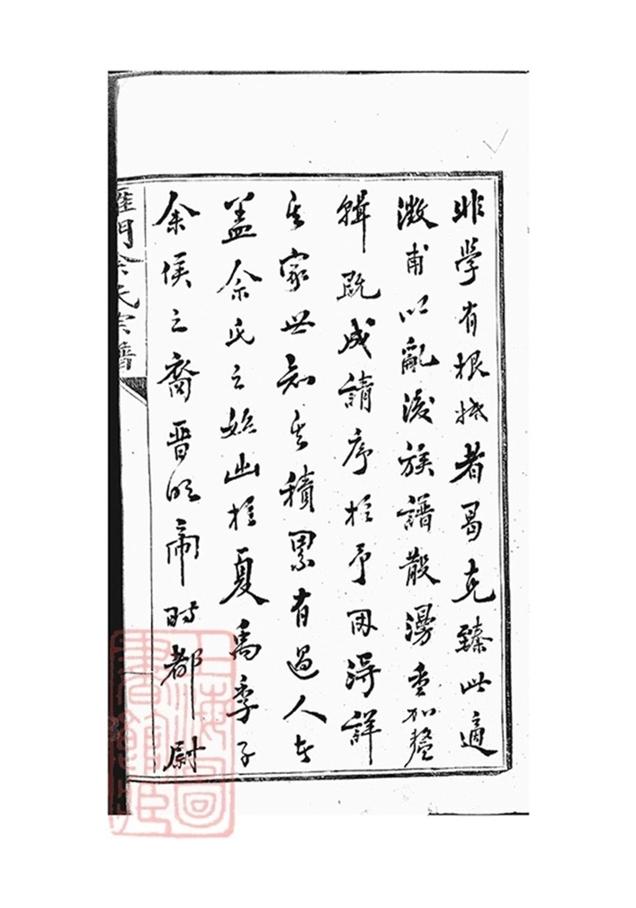 非学有根柢者曷克臻此適
澂甫以亂後族譜散漫重加釐
輯既成請序於予因得詳
其家世知其積累有過人者
蓋余氏之始出於夏禹季子
余侯之裔晋明帝時都尉
雁門余氏宗譜
上海圖書館藏